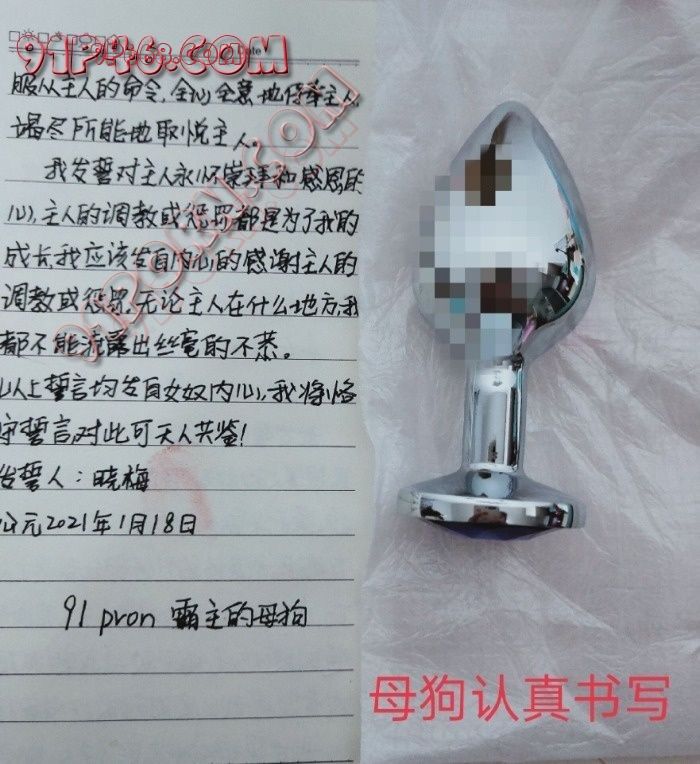 91P46.COM
Date
服从主人的命令,全心全意地侍奉主人
竭尽所能地取悦主人。
我发誓对主人永怀崇拜和感恩的
心,主人的调教或惩罚都是为了我的
成长,我应该发自内心的感谢主人的
调教或惩罚,无论主人在什么地方,我
都不能流露出丝毫的不恭。
以上誓言均发自女奴内心,我将恪
守誓言对此可天人共鉴!
发誓人:晓梅
公元2021年1月18日
91 pron 霸主的母狗
91PORNY.COM
母狗认真书写